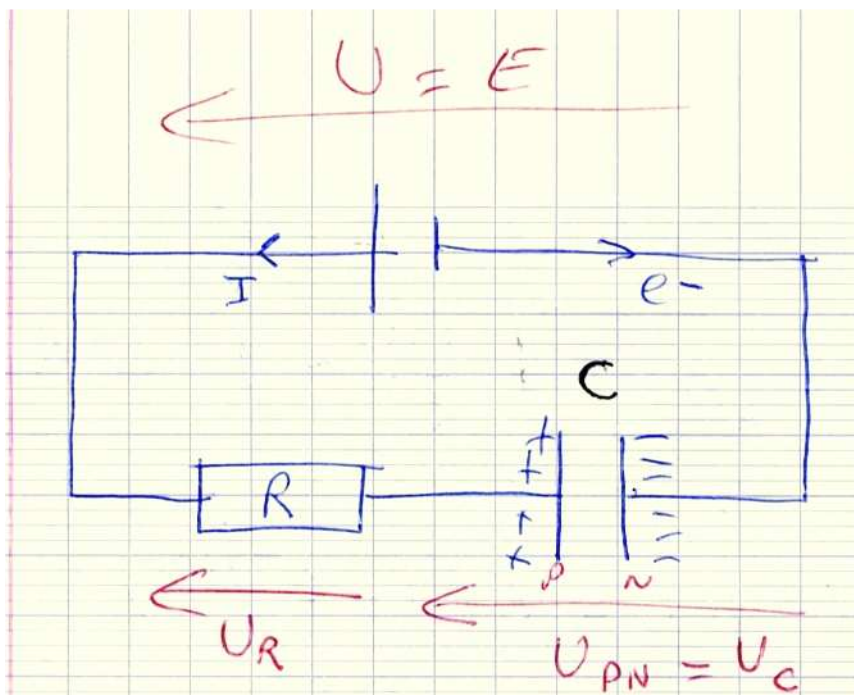 U = E
I
e-
C
R
+ -
+ -
+ -
+ -
P N
U_R
U_PN = U_C